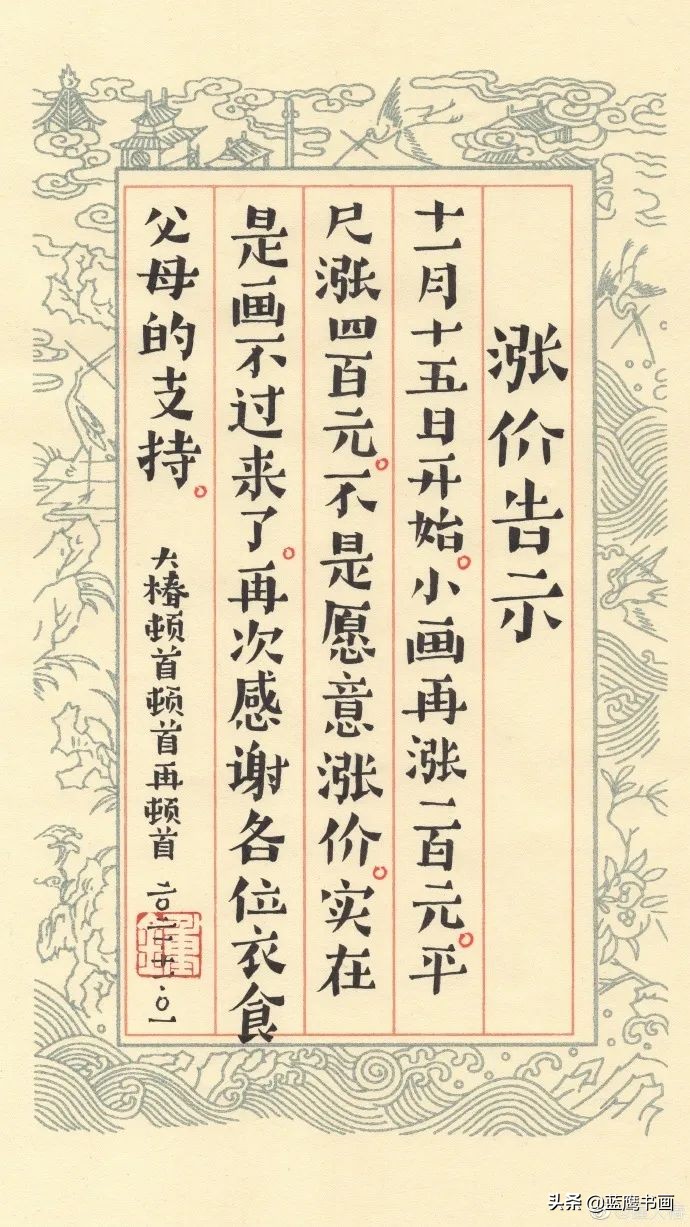 涨价告示
十一月十五日开始。小画再涨二百元。平
尺涨四百元。不是愿意涨价。实在
是画不过来了。再次感谢各位衣食
父母的支持。
大椿顿首顿首再顿首
头条 @蓝鹰书画